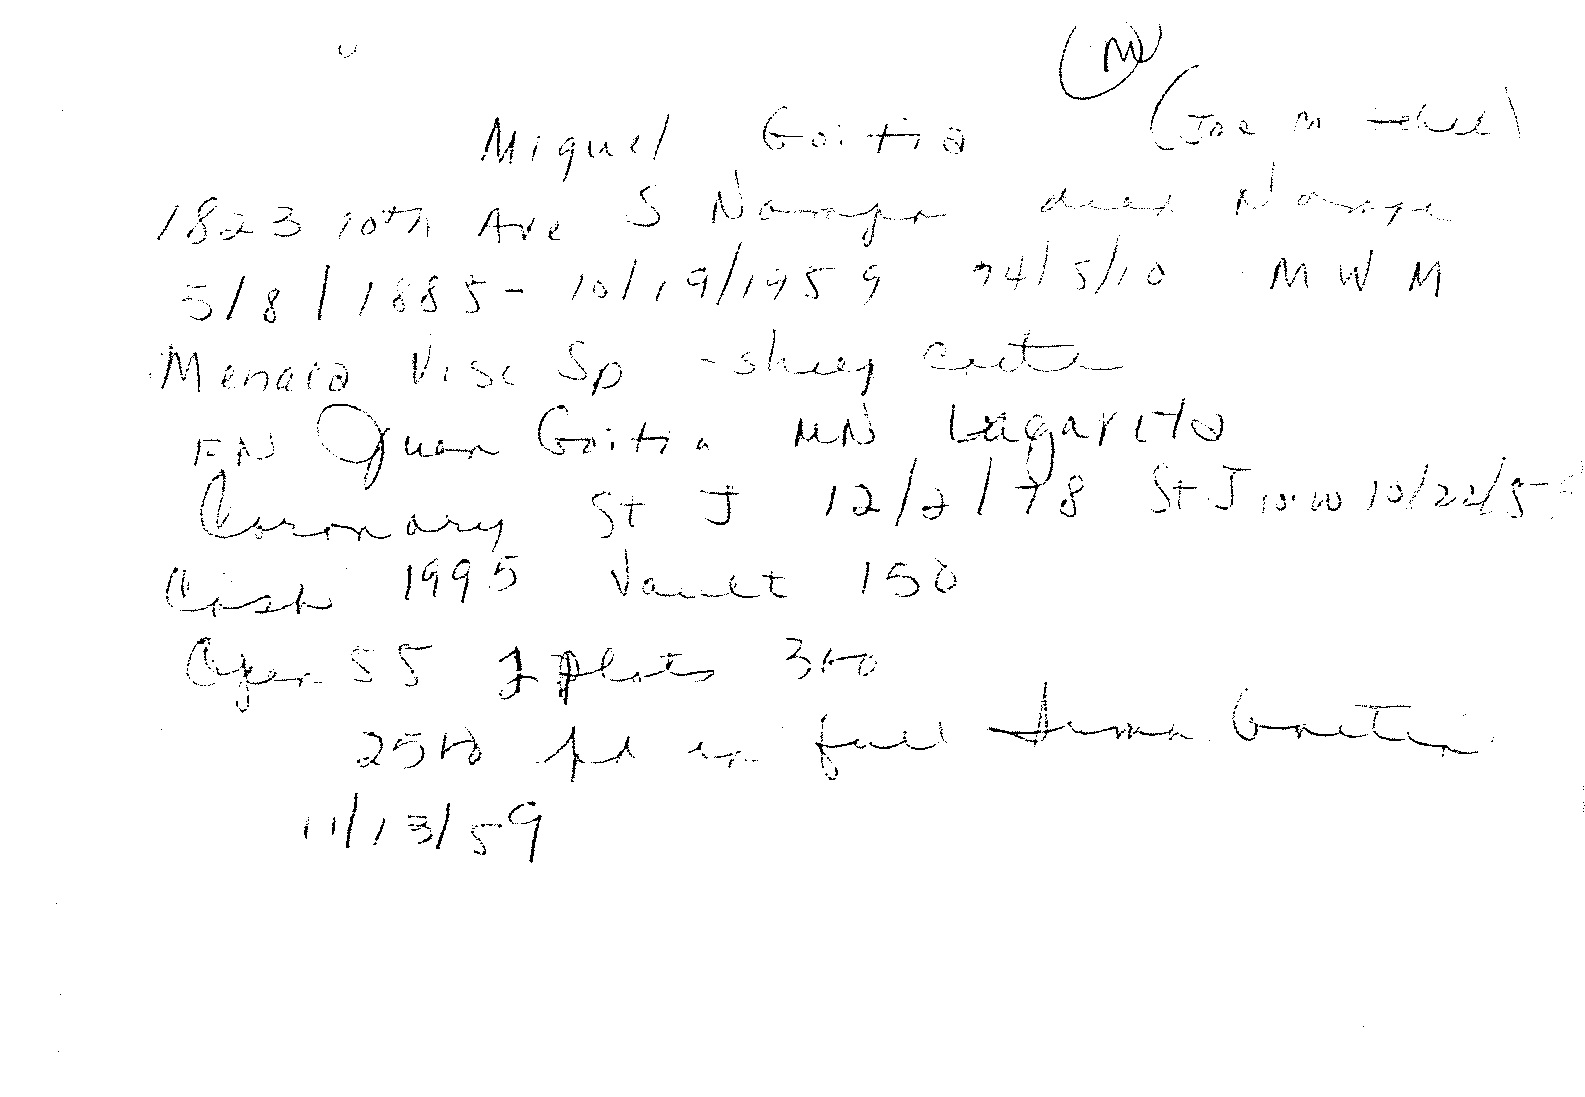 M
Miguel Goitia (Joe M
1823 10th Ave S Nampa died Nampa
5/8/1885- 10/19/1959 74/5/10 M W M
Menaca Visc Sp - sheep
FN Juan Goitia MN Lagareta
Coronary St J 12/2/78 St J 10:00 10/22/5
Cash 1995 Vault 150
Open 55 2 plots 300
2500 pd in full Goitia
11/13/59